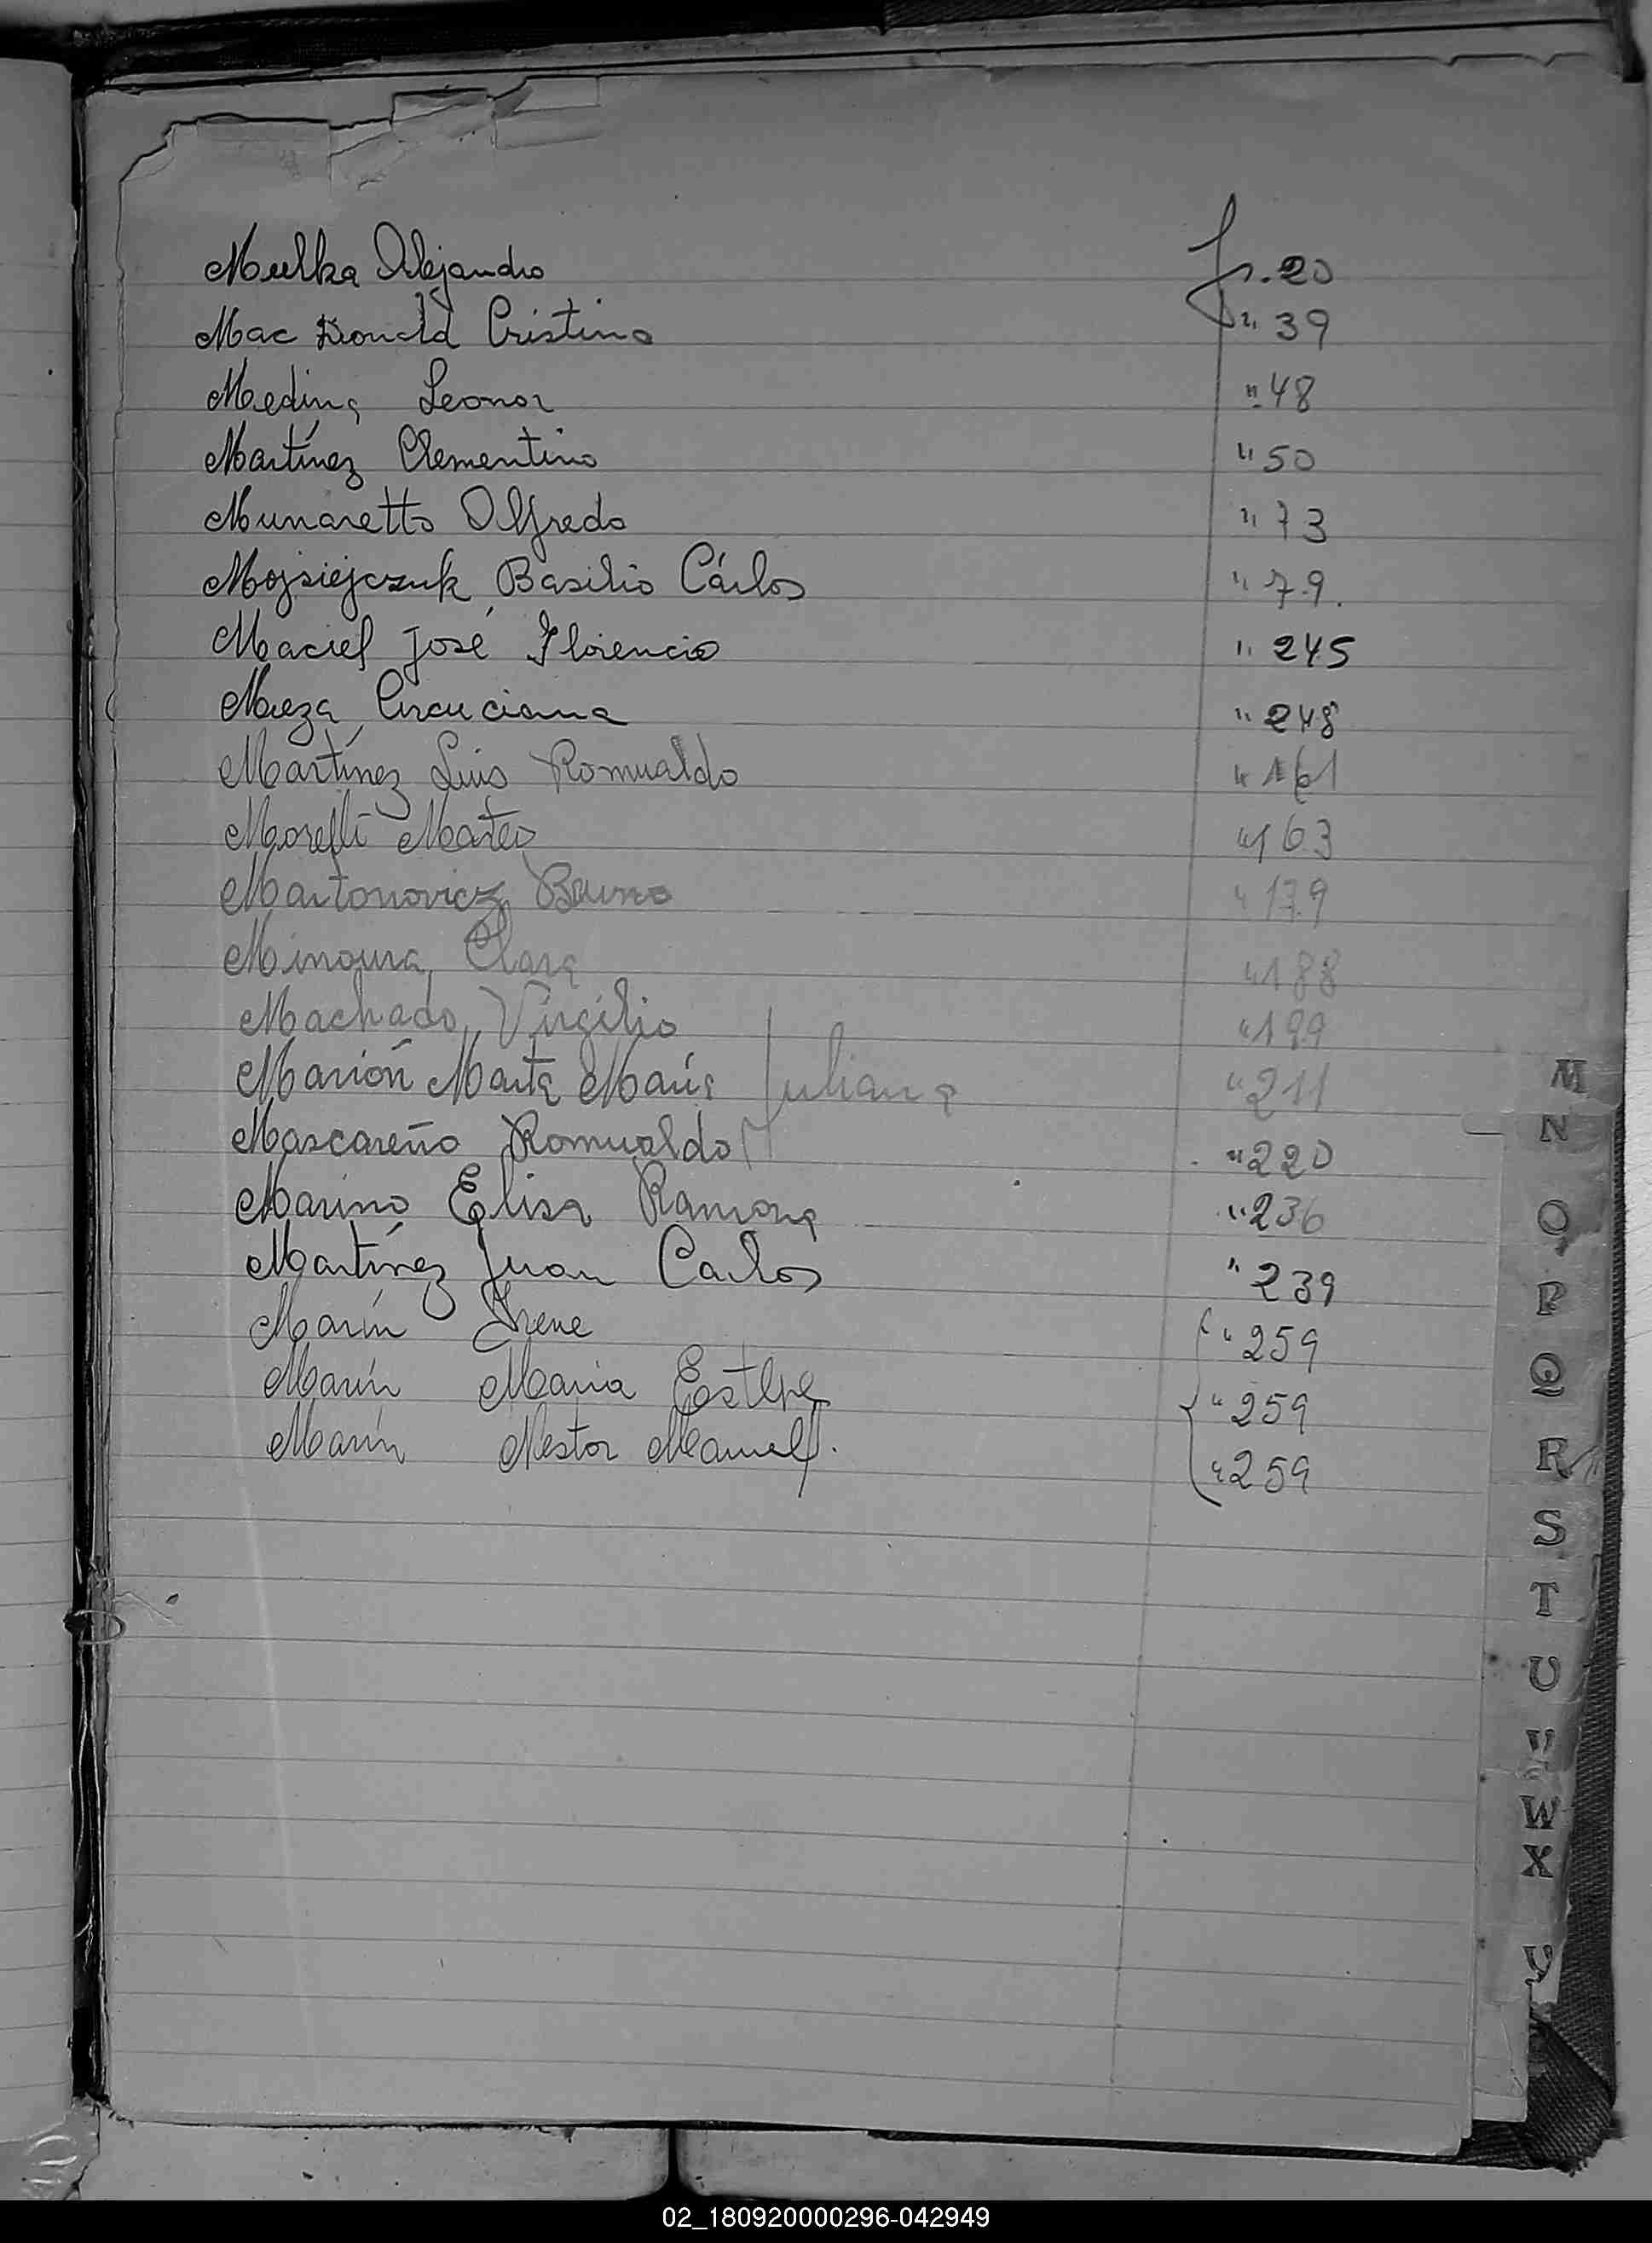 Mulka Alejandro fs. 20
Mac Donald Cristina " 39
Medina, Leonor " 48
Martínez Clementino " 50
Munaretto Alfredo " 73
Mojsiejczuk, Basilio Cárlos " 79.
Maciel José Florencio " 245
Meza, " 248
Martínez Luis Romualdo " 161
Morelli Mateo " 163
Martonovicz, Bruno " 179
Minoura, Clara " 188
Machado, Virgilio " 199
Marión Marta María Juliana " 211
Mascareño Romualdo " 220
Marino Elisa Ramona " 236
Martínez Juan Carlos " 239
Marín Irene " 259
Marín Maria Esther " 259
Marín Nestor Manuel. " 259
M
N
O
P
Q
R
S
T
U
V
W
X
Y
02_180920000296-042949